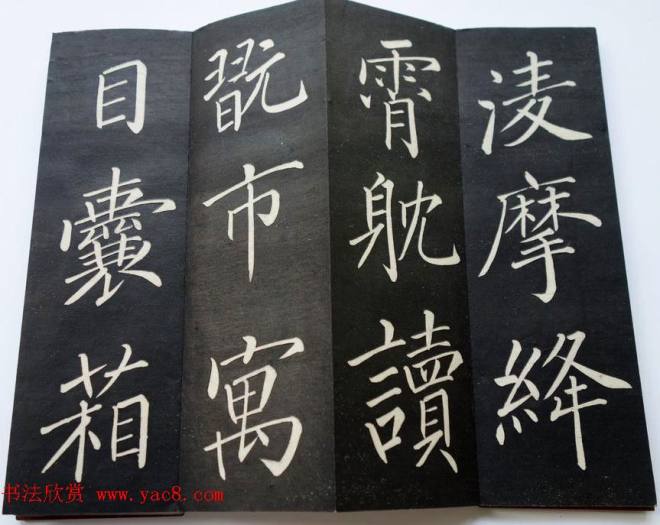 淩摩絳
霄躭讀
翫市寓
目囊箱
书法欣赏 www.yac8.com